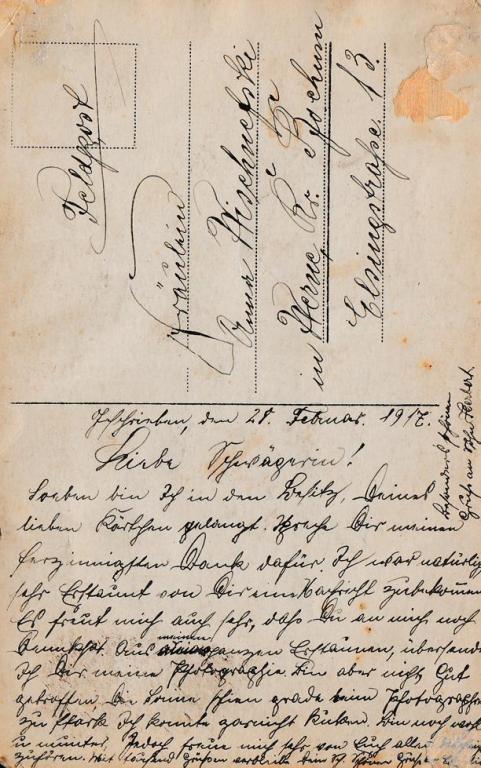 Feldpost
Fräulein
Anna Wischnefski
in Herne, Kr. Bochum
Elsingstraße. 13.
Geschrieben, den 28. Februar. 1917.
Liebe Schwägerin!
Soeben bin Ich in den Besitz, Deines
lieben Kärtchen gelangt. Spreche Dir meinen
herzinnigsten Dank dafür. Ich war natürlig
sehr Erstaunt von Dir eine Nachricht zubekommen
Es freut mich auch sehr, dahs Du an mich noch
Denkst. Aus meinen ganzen Erstaunen, übersende
Ich Dir meine Photographie. Bin aber nicht Gut
getroffen, Die Sonne schien grade beim Photographi
zu stark Ich konnte garnicht kucken. Bin noch
u munter, Jedoch freue mich sehr von Euch alles
zuhören. Mit Tausend Grüßen verbleibe Dein
Besonders schönen
Gruß an